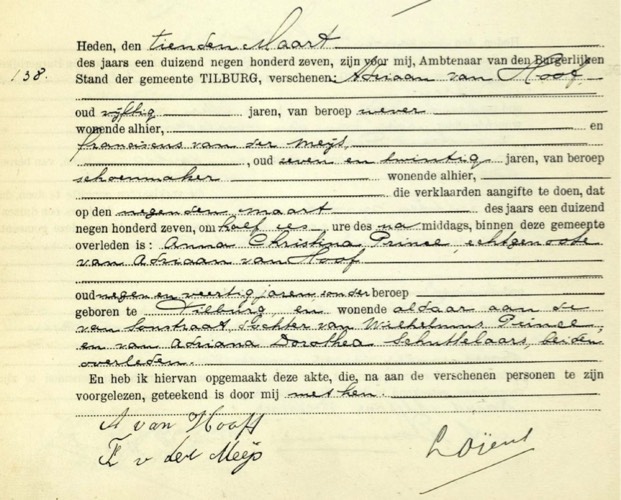 Heden, den tienden Maart
des jaars een duizend negen honderd zeven, zijn voor mij, Ambtenaar van den Burgerlijken
138. Stand der gemeente TILBURG, verschenen: Adriaan van Hoof,
oud vijftig jaren, van beroep wever
wonende alhier, en
Franciscus van der Meijs,
, oud zeven en twintig jaren, van beroep
schoenmaker wonende alhier,
die verklaarden aangifte te doen, dat
op den negenden maart des jaars een duizend
negen honderd zeven, om half zes, ure des na middags, binnen deze gemeente
overleden is: Anna Christina Prince, echtgenoote
van Adriaan van Hoof
oud negen en veertig jaren zonder beroep
geboren te Tilburg, en wonende aldaar aan de
dochter van Wilhelmus Prince,
en van Adriana Dorothea Schuttelaars, beiden
overleden.
En heb ik hiervan opgemaakt deze akte, die, na aan de verschenen personen te zijn
voorgelezen, geteekend is door mij met hen.
A van Hooff
F v der Meijs